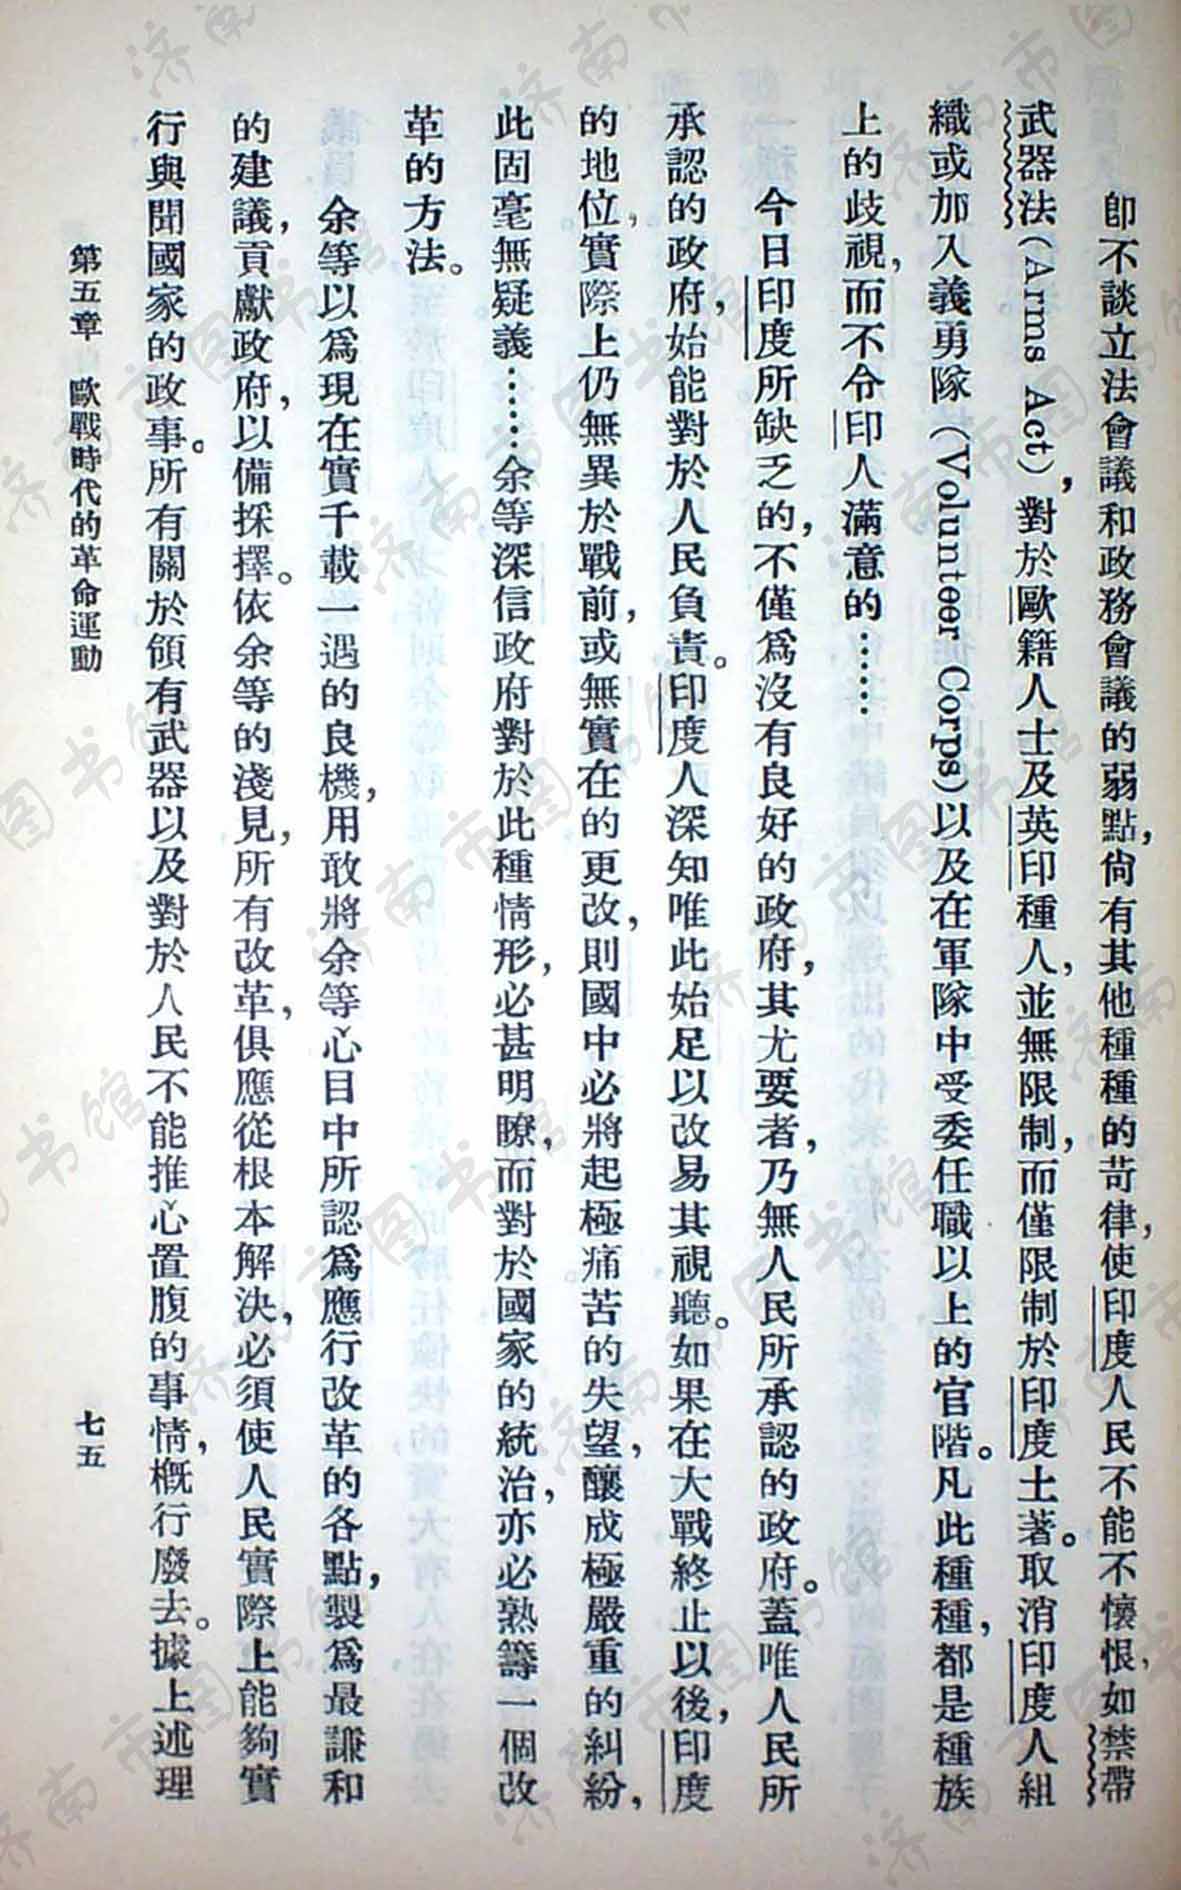 卽不談立法會議和政務會議的弱點，尙有其他種種的苛律，使印度人民不能不懷恨，如禁帶
武器法（Arms Act），對於歐籍人士及英印種人，並無限制，而僅限制於印度土著。取消印度人組
織或加入義勇隊（Volunteer Corps）以及在軍隊中受委任職以上的官階。凡此種種，都是種族
上的歧視，而不令印人滿意的……
今日印度所缺乏的，不僅爲沒有良好的政府，其尤要者，乃無人民所承認的政府。蓋唯人民所
承認的政府，始能對於人民負責。印度人深知唯此始足以改易其視聽。如果在大戰終止以後，印度
的地位，實際上仍無異於戰前，或無實在的更改，則國中必將起極痛苦的失望，釀成極嚴重的糾紛，
此固毫無疑義……余等深信政府對於此種情形，必甚明瞭，而對於國家的統治，亦必熟籌一個改
革的方法。
余等以爲現在實千載一遇的良機，用敢將余等心目中所認爲應行改革的各點，製爲最謙和
的建議，貢獻政府，以備採擇。依余等的淺見，所有改革，俱應從根本解決，必須使人民實際上能夠實
行與聞國家的政事。所有關於領有武器以及對於人民不能推心置腹的事情，槪行廢去。據上述理
第五章 歐戰時代的革命運動
七五
濟南市图书馆